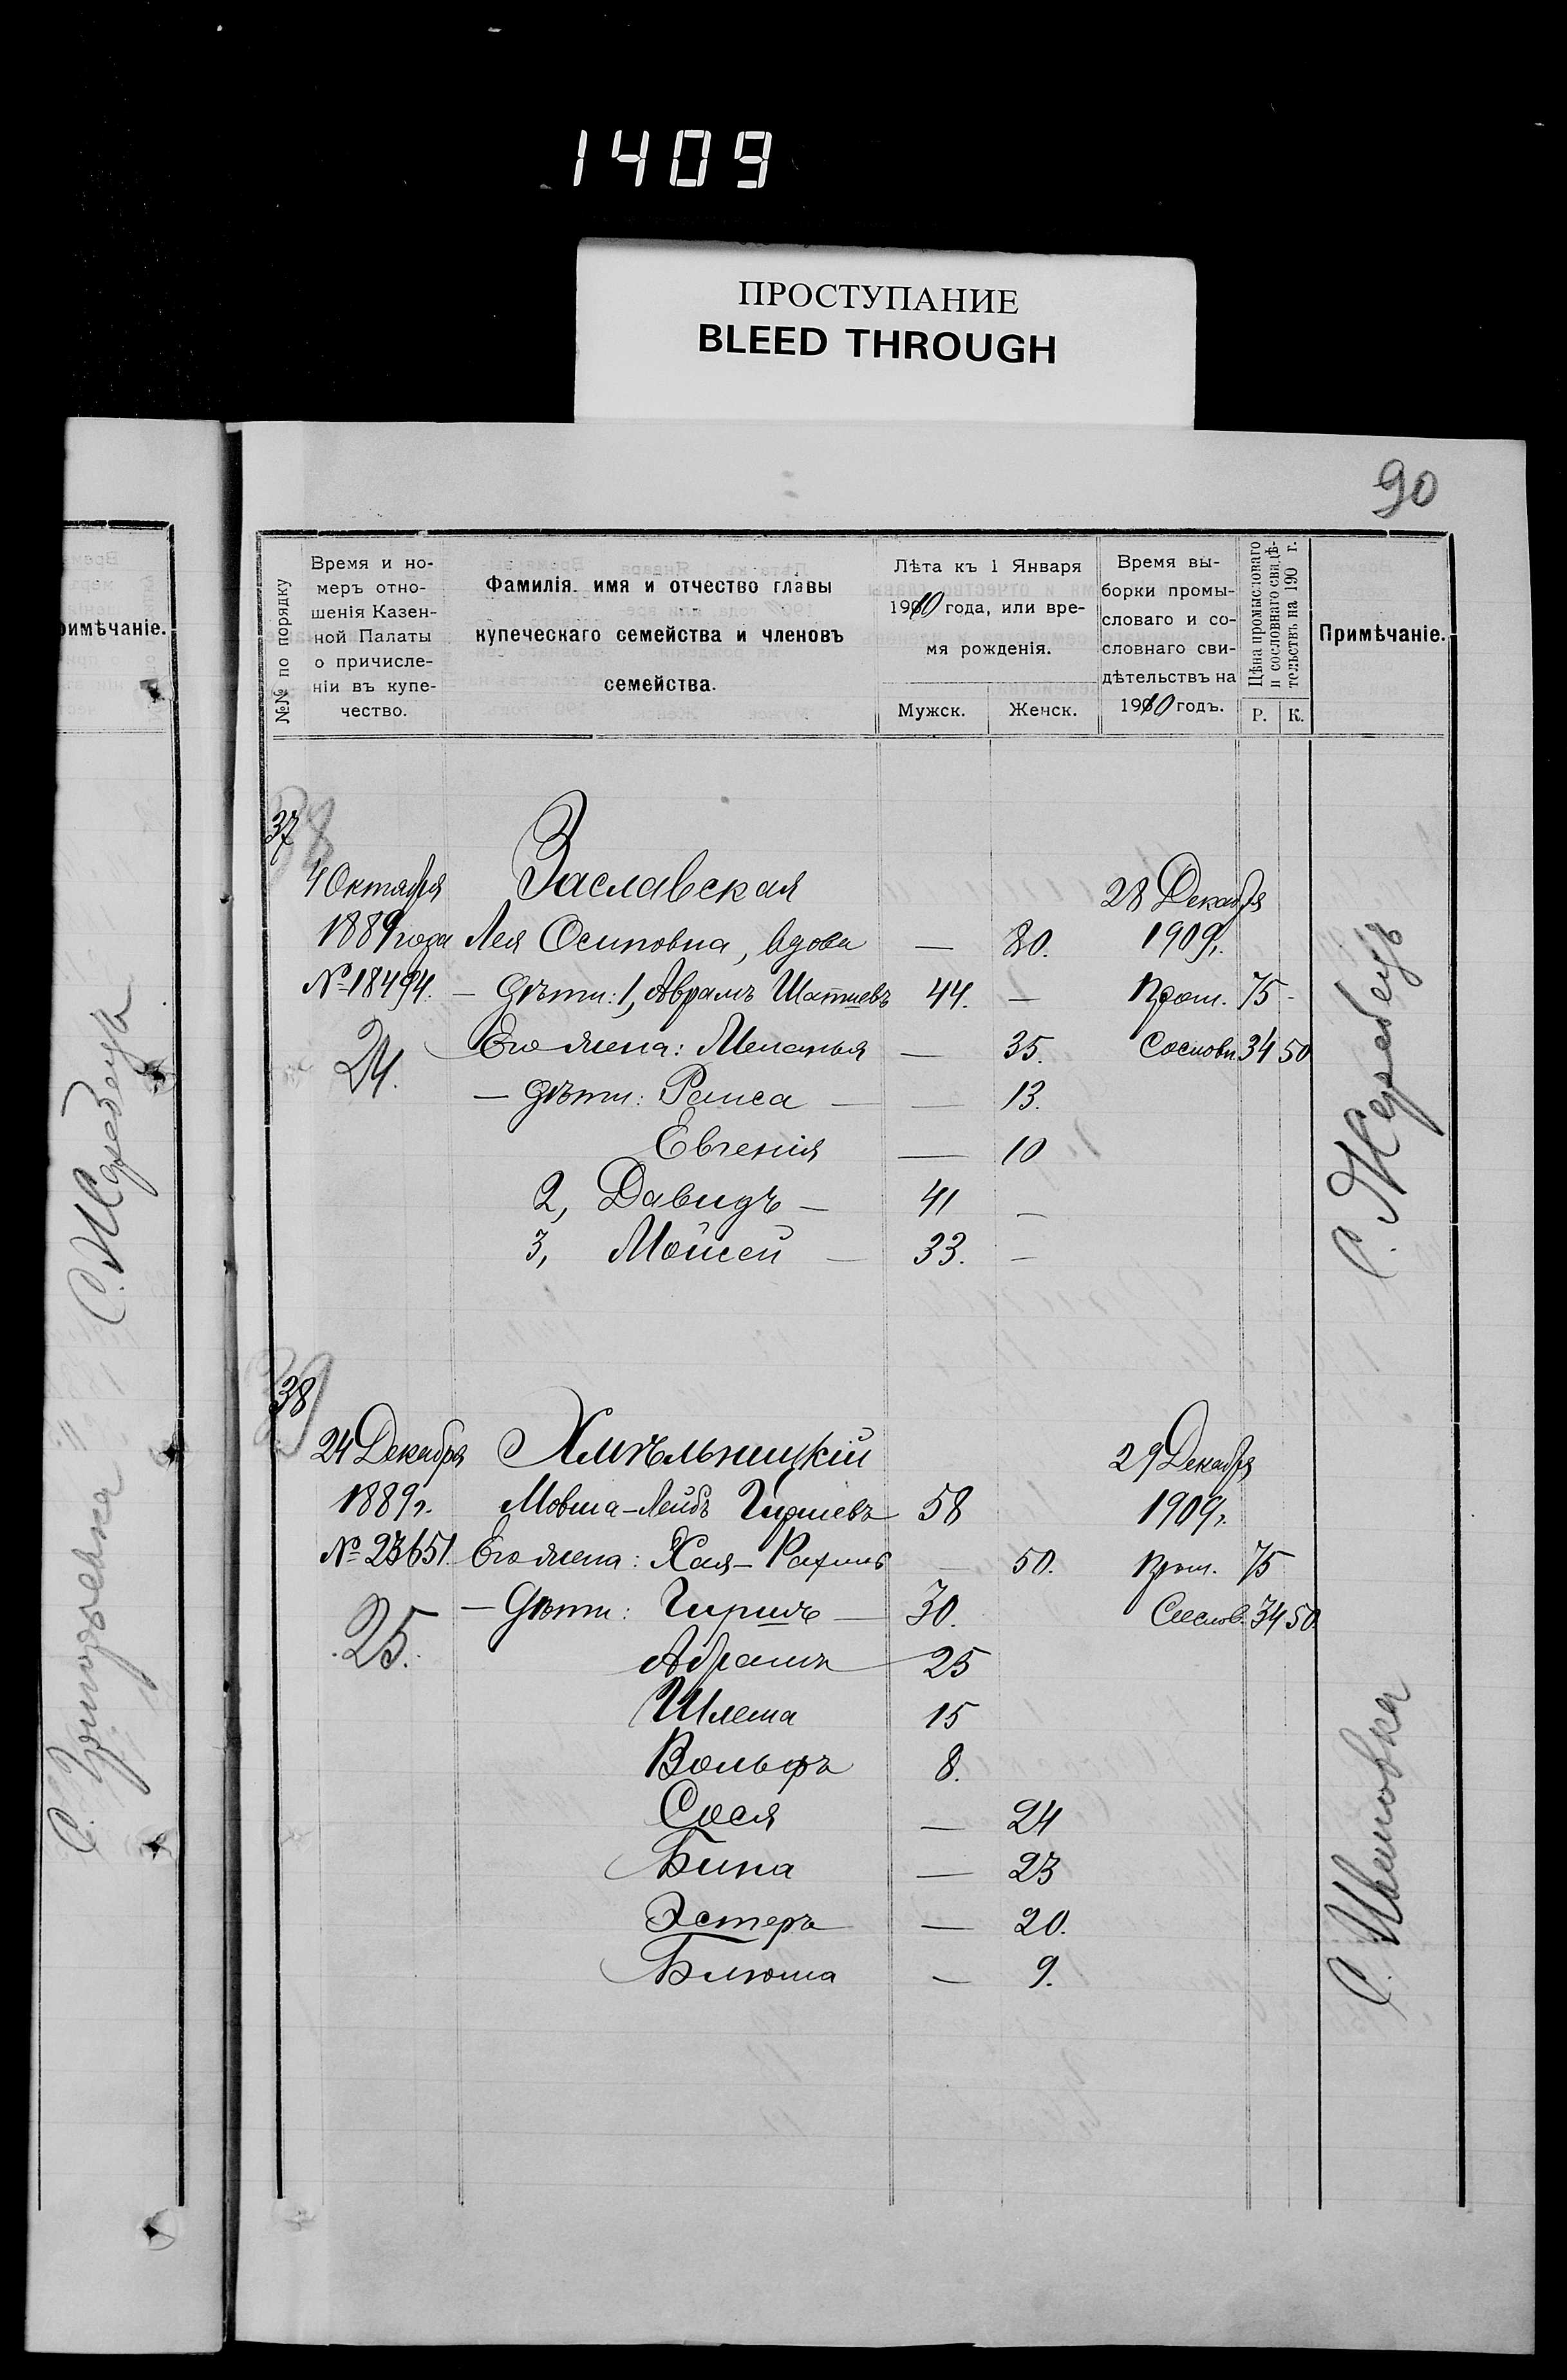 1409
ПРОСТУПАНИЕ
BLEED THROUGH
90
римѣчаніе.
С. Жеребецъ
С. Григорьевка
№№ по порядку
Время и но-
меръ отно-
шенія Казен-
ной Палаты
о причисле-
ніи въ купе-
чество.
Фамилія. имя и отчество главы
купеческаго семейства и членовъ
семейства.
Лѣта къ 1 Января
1910 года, или вре-
мя рожденія.
Мужск. Женск.
Время вы-
борки промы-
словаго и со-
словнаго сви-
дѣтельствъ на
1910 годъ.
Цѣна промысловаго
и сословнаго свидѣ-
тельствъ на 190 г.
Р. К.
Примѣчаніе.
37
4 Октября Заславская 28 Декабря
1889 года Лея Осиповна, вдова — 80. 1909 г.
№ 18494. — Дѣти: 1, Аврамъ 44. — Пром. 75 -
24. Его жена: Меланья — 35. Сословн. 34 50
— Дѣти: Раиса — — 13.
Евгенія — 10
2, Давидъ — 41 —
3, Мойсей — 33. —
С. Жеребецъ
38
24 Декабря Хмѣльницкій 29 Декабря
1889 г. Мовша-Лейбъ Гиршевъ 58 1909 г.
№ 23651. Его жена: Хая- — 50. Пром. 75
25. — Дѣти: Гиршъ — 30. Сослов. 34 50.
Абрамъ 25
Шлема 15
Вольфъ 8.
Сося — 24
Бина — 23
Эстеръ — 20.
Блюма — 9.